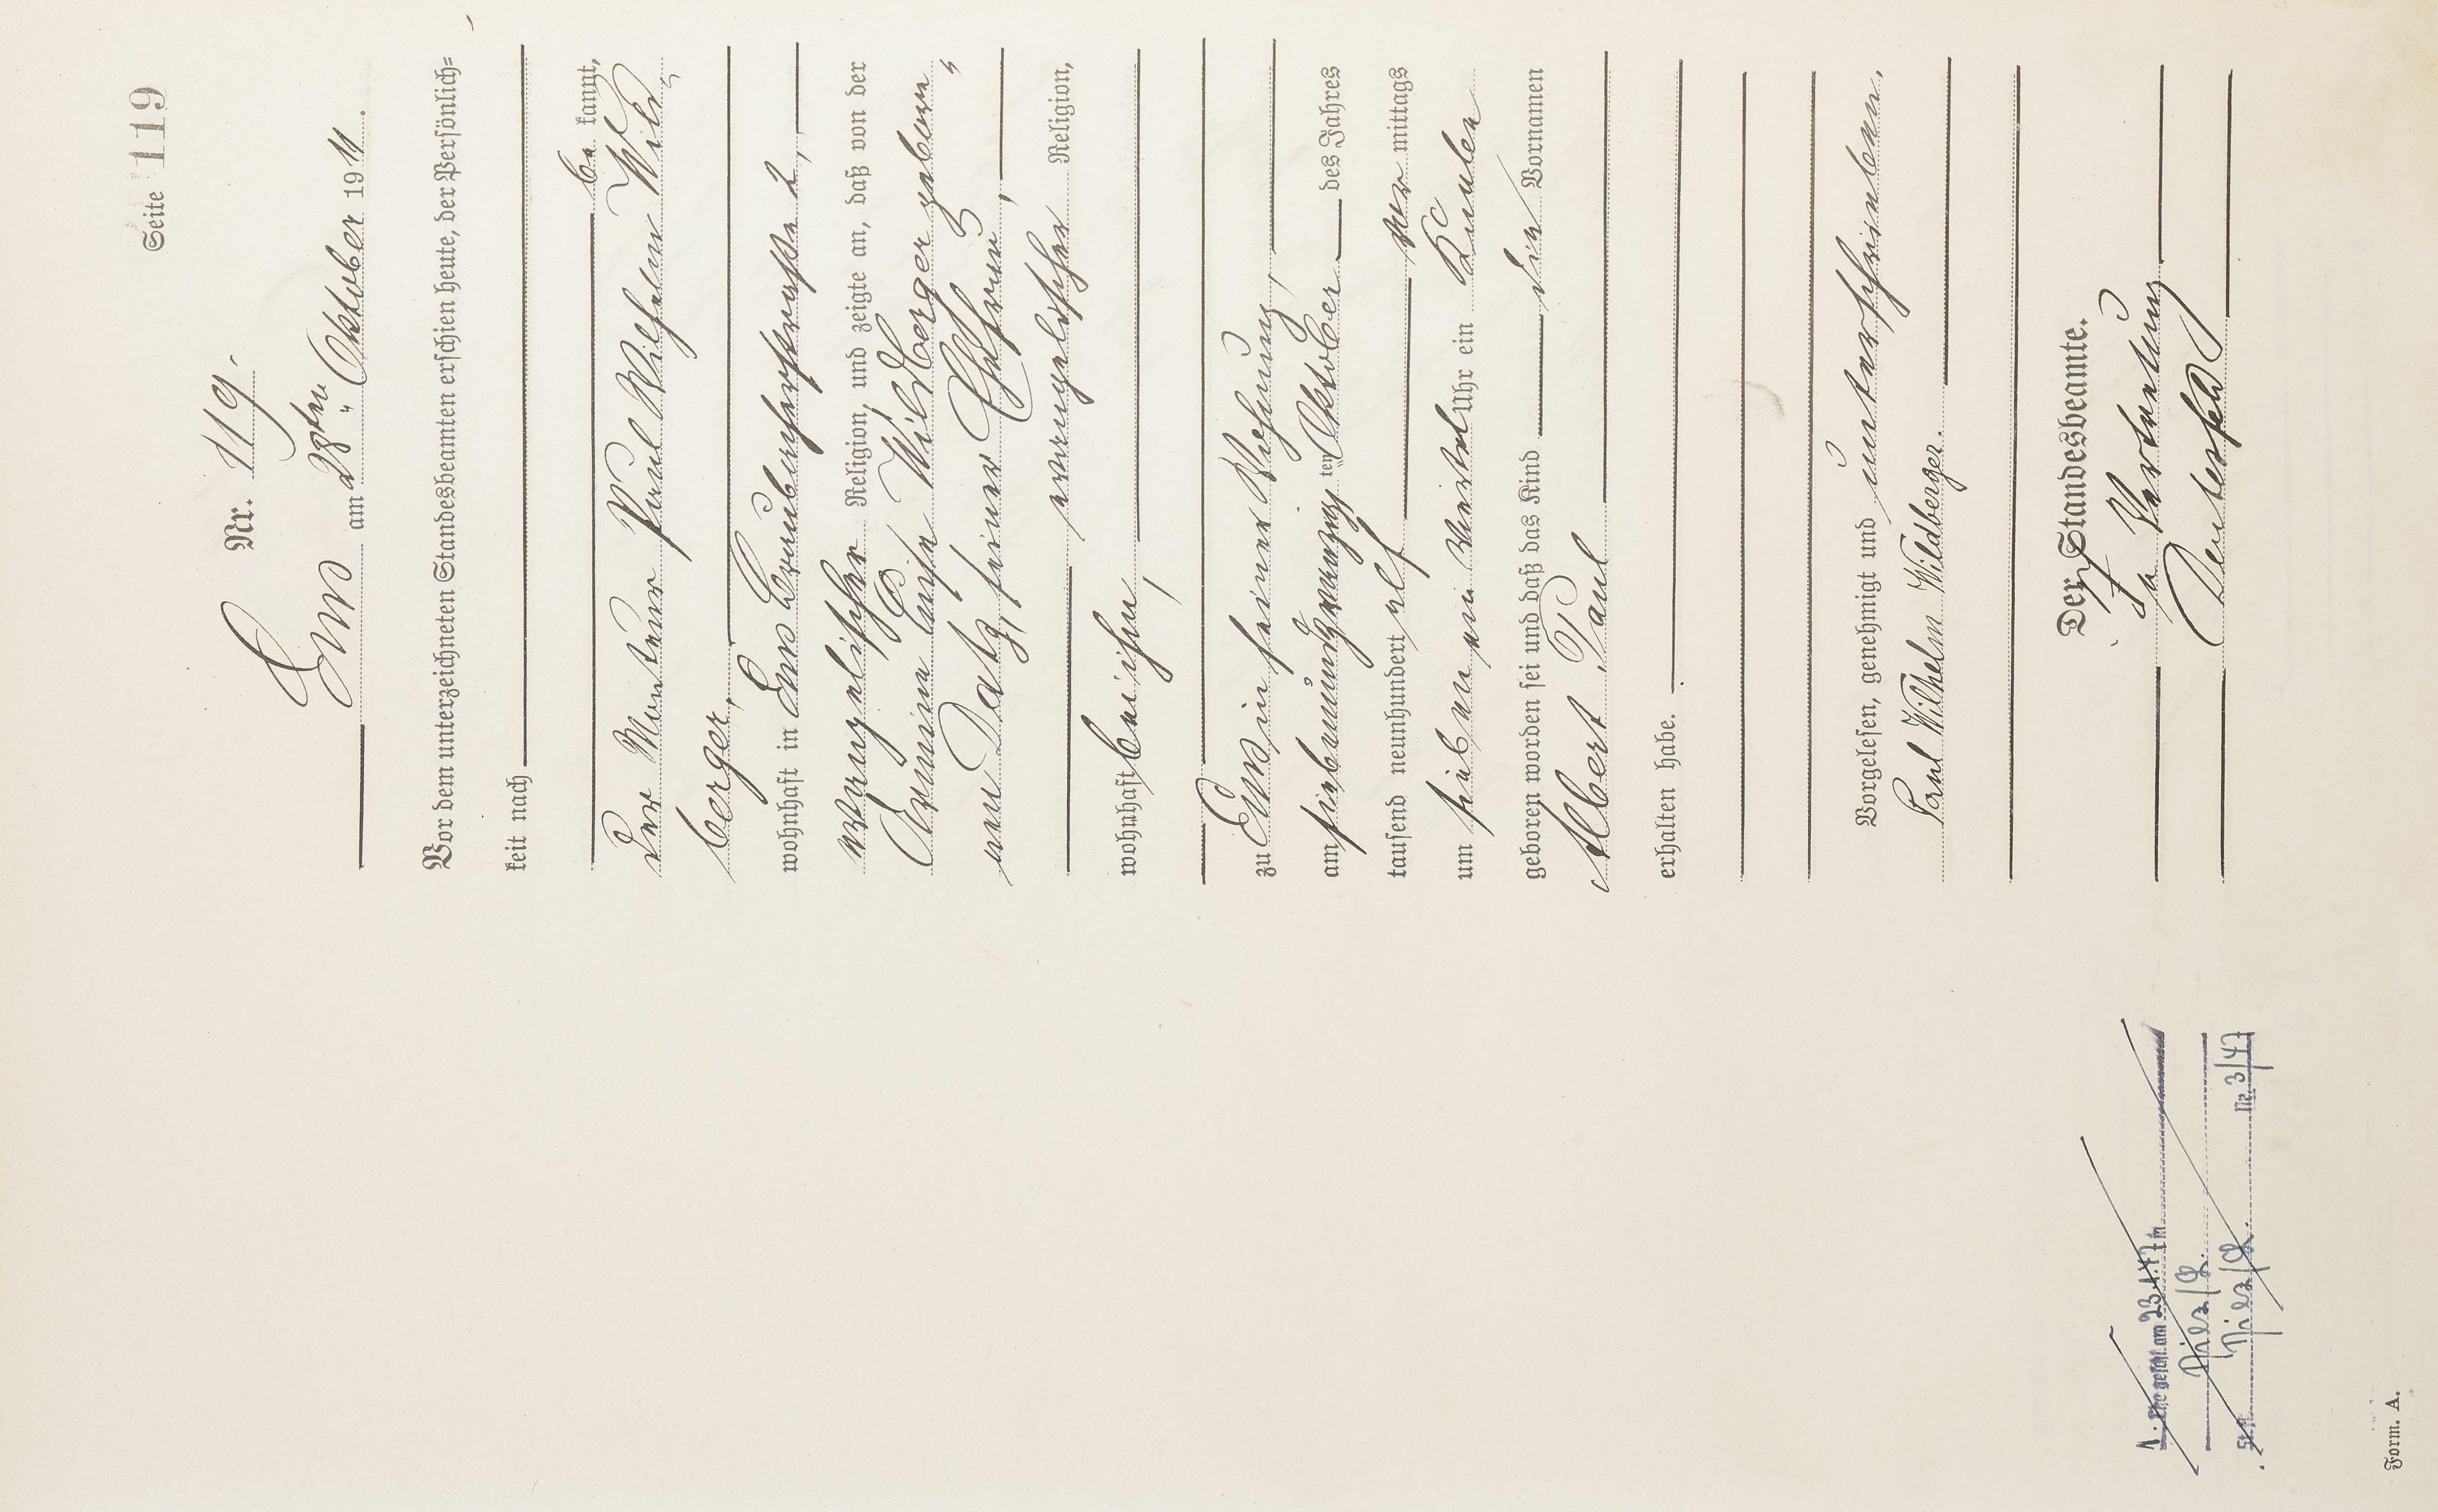 Seite 119
Nr. 119.
Ems am 28ten Oktober 1911.
Vor dem unterzeichneten Standesbeamten erschien heute, der Persönlich=
keit nach
be kannt,
der Monteur Paul Wilhelm Wild-
berger,
wohnhaft in Ems Braubacherstraße 2,
evangelischer Religion, und zeigte an, daß von der
Wildberger gebore-
nen Datz, seiner Ehefrau,
evangelischer Religion,
wohnhaft bei ihm,
zu Ems in seiner Wohnung,
am siebenundzwanzig ten Oktober des Jahres
tausend neunhundert elf vor mittags
um sieben ein Viertel Uhr ein Knabe
geboren worden sei und daß das Kind die Vornamen
Albert Paul
erhalten habe.
Vorgelesen, genehmigt und unterschrieben.
Paul Wilhelm Wildberger.
Der Standesbeamte.
In Vertretung
1. Ehe geschl. am 23.1.47 in
Diez/L.
St.A. Diez/L. Nr. 3/47
Form. A.